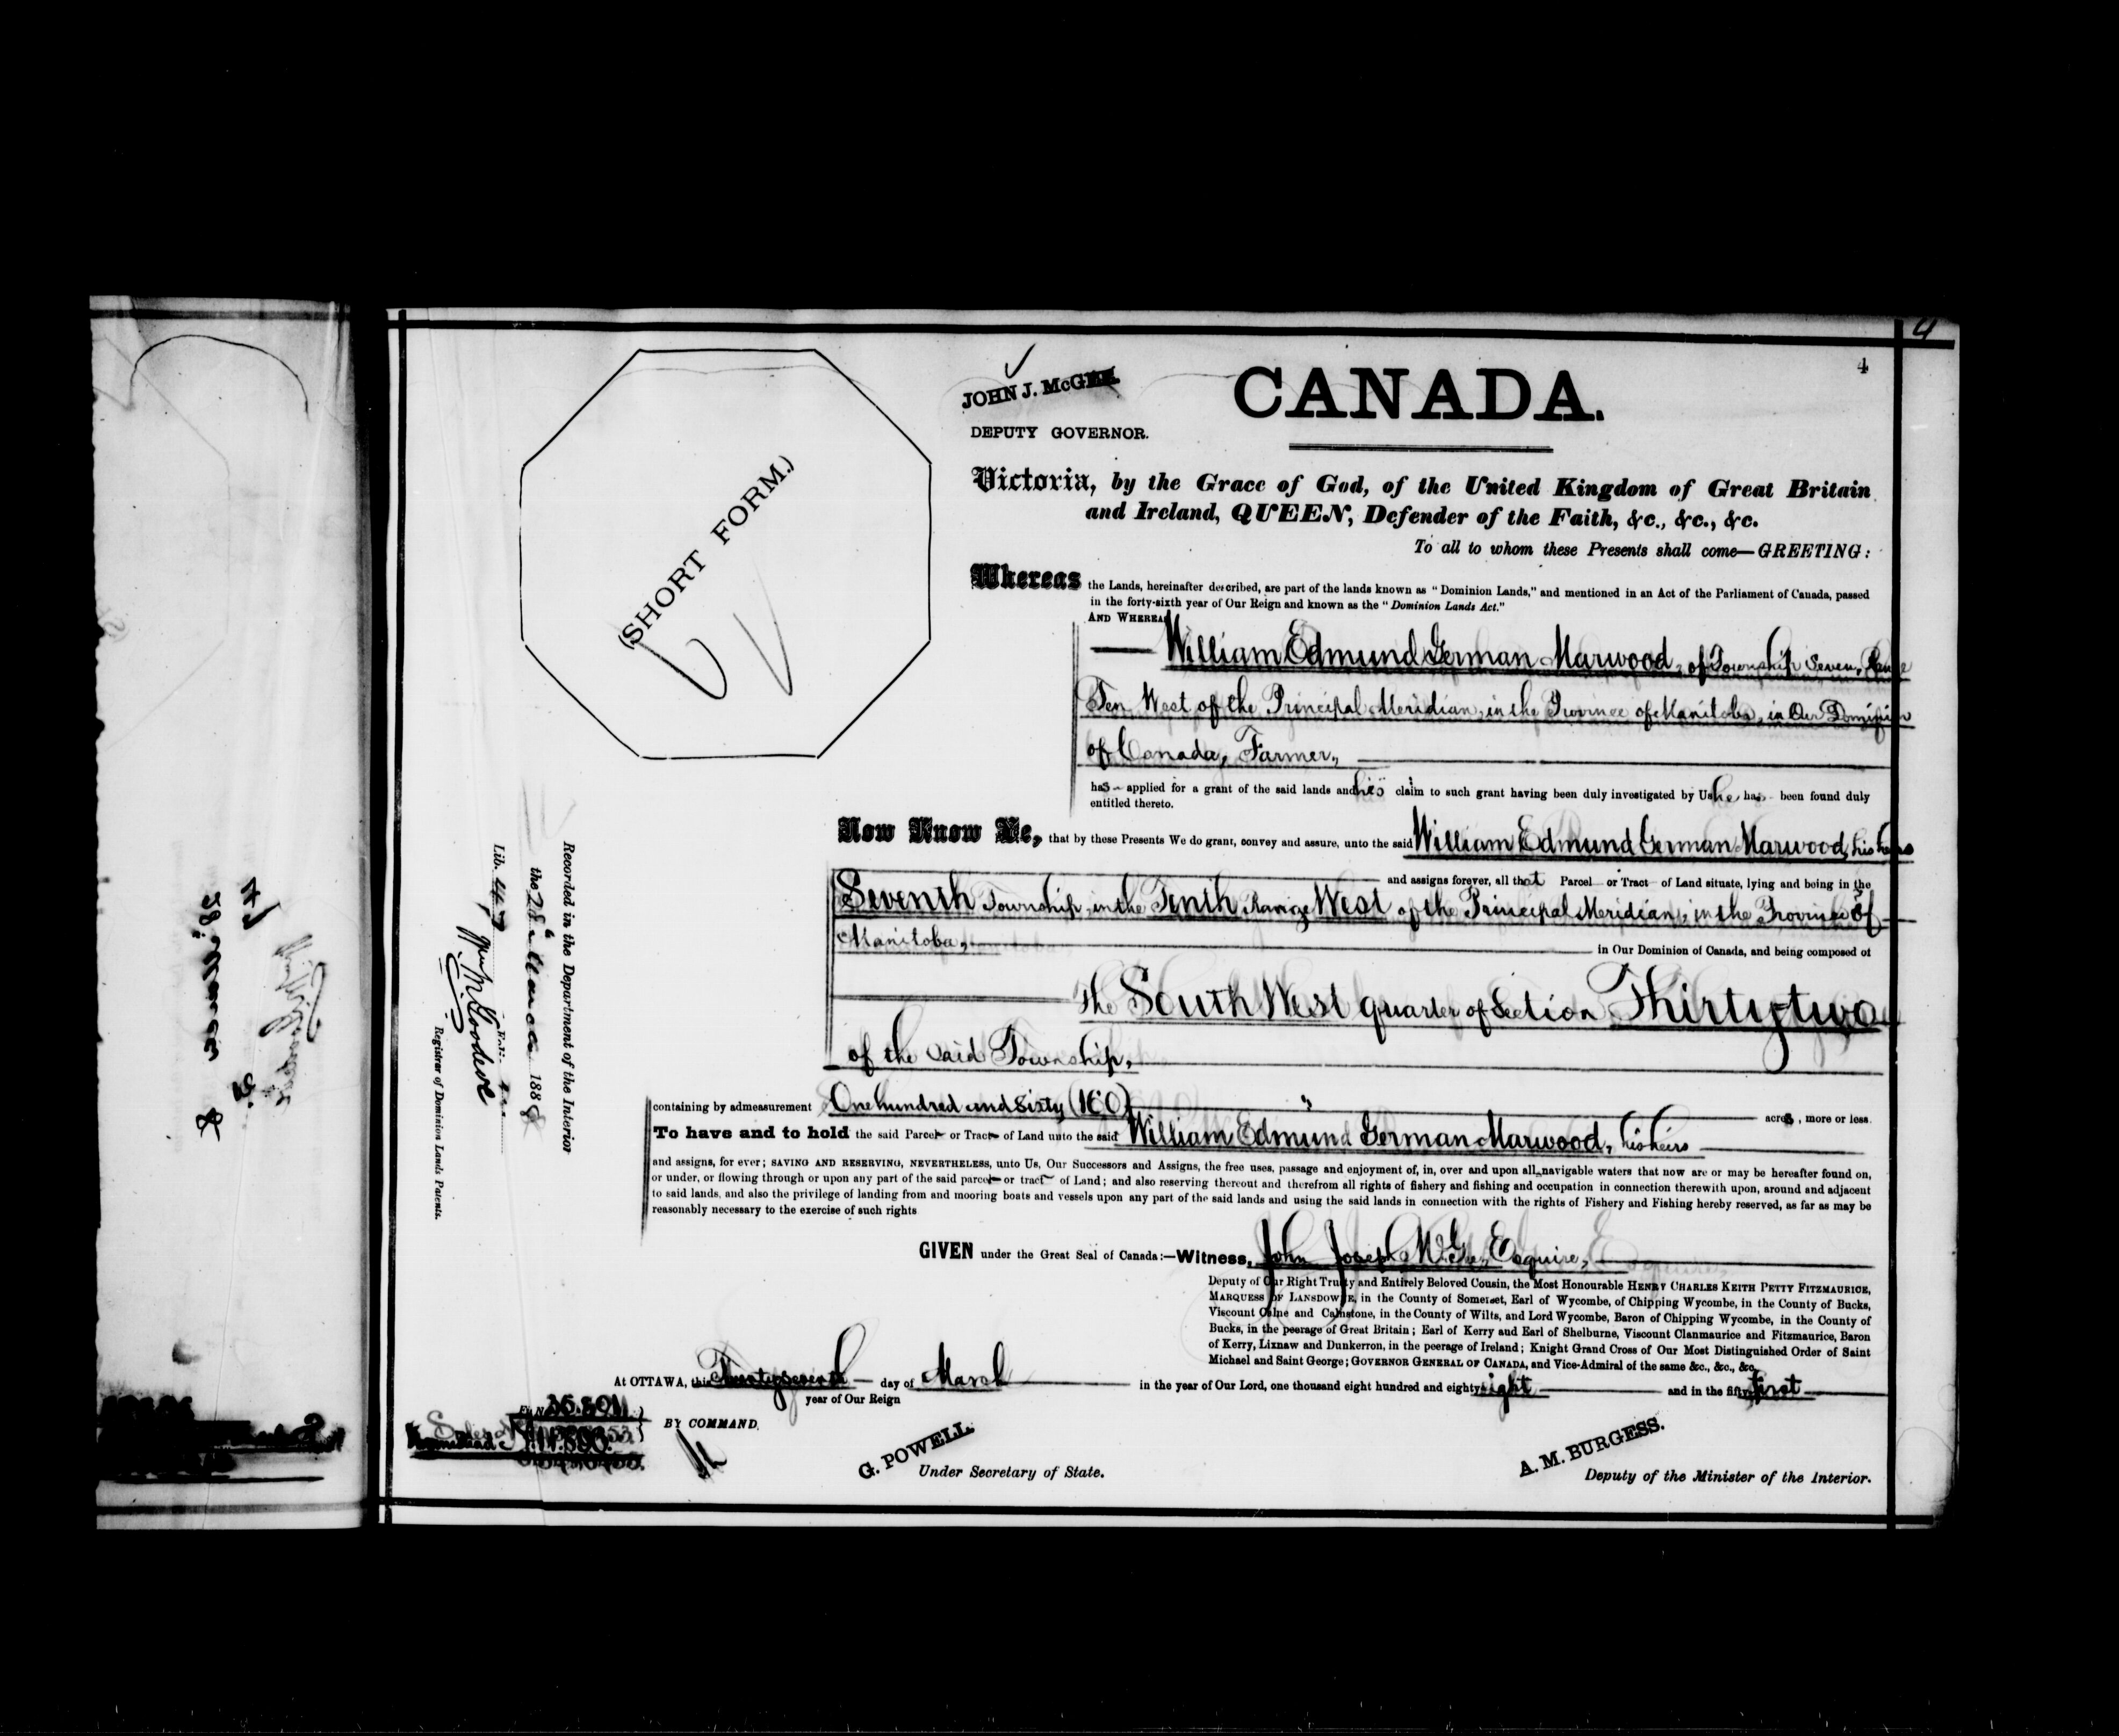 4
4
JOHN J. McGEE.
DEPUTY GOVERNOR.
CANADA.
(SHORT FORM.)
Victoria, by the Grace of God, of the United Kingdom of Great Britain
and Ireland, QUEEN, Defender of the Faith, &c., &c., &c.
To all to whom these Presents shall come—GREETING:
Whereas the Lands, hereinafter described, are part of the lands known as "Dominion Lands," and mentioned in an Act of the Parliament of Canada, passed
in the forty-sixth year of Our Reign and known as the "Dominion Lands Act."
AND WHEREAS
William Edmund German Marwood, of Township Seven, Range
Ten West of the Principal Meridian, in the Province of Manitoba, in Our Dominion
of Canada, Farmer,
has applied for a grant of the said lands and his claim to such grant having been duly investigated by Us he has been found duly
entitled thereto.
Now Know Ye, that by these Presents We do grant, convey and assure, unto the said William Edmund German Marwood, his heirs
and assigns forever, all that Parcel or Tract of Land situate, lying and being in the
Seventh Township, in the Tenth Range West of the Principal Meridian, in the Province of
Manitoba,
in Our Dominion of Canada, and being composed of
The South West quarter of Section Thirty-two
of the said Township,
containing by admeasurement One hundred and sixty (160) acres, more or less.
To have and to hold the said Parcel or Tract of Land unto the said William Edmund German Marwood, his heirs
and assigns, for ever; SAVING AND RESERVING, NEVERTHELESS, unto Us, Our Successors and Assigns, the free uses, passage and enjoyment of, in, over and upon all navigable waters that now are or may be hereafter found on,
or under, or flowing through or upon any part of the said parcel or tract of Land; and also reserving thereout and therefrom all rights of fishery and fishing and occupation in connection therewith upon, around and adjacent
to said lands, and also the privilege of landing from and mooring boats and vessels upon any part of the said lands and using the said lands in connection with the rights of Fishery and Fishing hereby reserved, as far as may be
reasonably necessary to the exercise of such rights
GIVEN under the Great Seal of Canada:—Witness, John Joseph McGee, Esquire,
Deputy of Our Right Trusty and Entirely Beloved Cousin, the Most Honourable HENRY CHARLES KEITH PETTY FITZMAURICE,
MARQUESS OF LANSDOWNE, in the County of Somerset, Earl of Wycombe, of Chipping Wycombe, in the County of Bucks,
Viscount Calne and Calnstone, in the County of Wilts, and Lord Wycombe, Baron of Chipping Wycombe, in the County of
Bucks, in the peerage of Great Britain; Earl of Kerry and Earl of Shelburne, Viscount Clanmaurice and Fitzmaurice, Baron
of Kerry, Lixnaw and Dunkerron, in the peerage of Ireland; Knight Grand Cross of Our Most Distinguished Order of Saint
Michael and Saint George; GOVERNOR GENERAL OF CANADA, and Vice-Admiral of the same &c., &c., &c.
At OTTAWA, this Twenty seventh day of March in the year of Our Lord, one thousand eight hundred and eighty eight and in the fifty first
year of Our Reign
BY COMMAND,
G. POWELL.
Under Secretary of State.
A. M. BURGESS.
Deputy of the Minister of the Interior.
Recorded in the Department of the Interior
the 28 March 1888
Lib. 47
Registrar of Dominion Lands Patents.